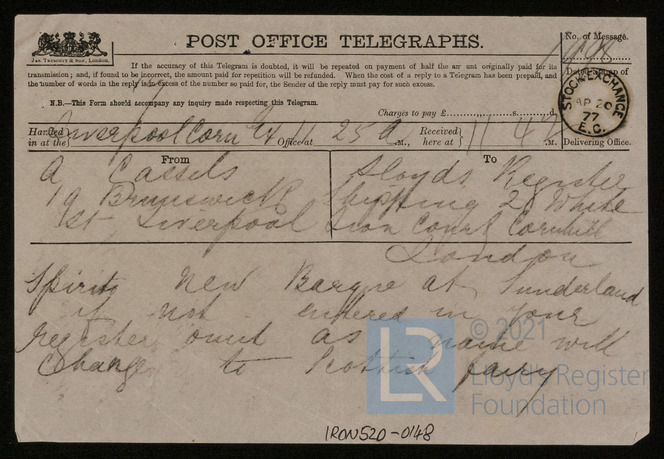 POST OFFICE TELEGRAPHS.
Jas. Truscott & Son, London.
No. of Message.
If the accuracy of this Telegram is doubted, it will be repeated on payment of half the amount originally paid for its
transmission; and, if found to be incorrect, the amount paid for repetition will be refunded. When the cost of a reply to a Telegram has been prepaid, and
the number of words in the reply is in excess of the number so paid for, the Sender of the reply must pay for such excess.
N.B.—This Form should accompany any inquiry made respecting this Telegram.
Charges to pay £ s. d.
STOCK EXCHANGE
AP 20
77
E.C.
Handed in at the Liverpool Corn Ex Office at 11 25 A.M., Received here at 11 47 .M.
Delivering Office.
From
To
A Cassels
19 Brunswick
St Liverpool
Lloyds Register
Shipping 2 White
Lion Court Cornhill
London
Spirits New Barque at Sunderland
if not entered in your
register omit as name will
Change to Scottish fairy
LR
© 2021
Lloyd's Register
Foundation
IRON520-0148